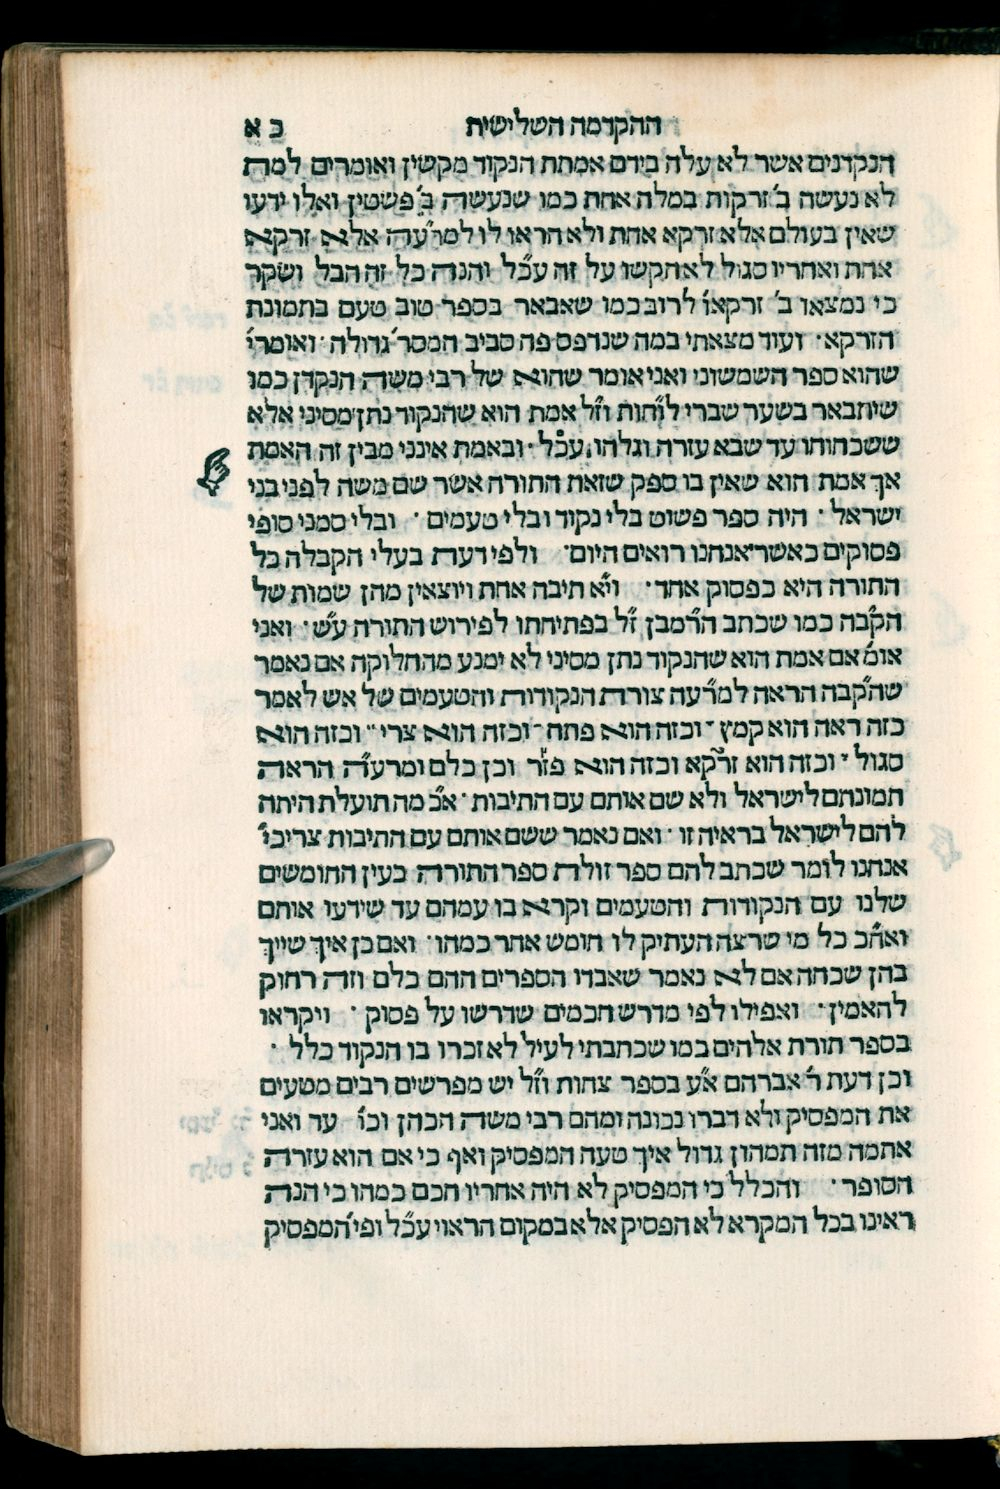 ההקדמה השלישית כא
הנקדנים אשר לא עלה בידם אמתת הנקוד מקשין ואומרים למה
לא נעשה ב׳ זרקות במלה אחת כמו שנעשה ב׳ פשטין ואלו ידעו
שאין בעולם אלא זרקא אחת ולא הראו לו למר״עה אלא זרקא
אחת ואחריו סגול לא הקשו על זה עכ״ל והנה כל זה הבל ושקר
כי נמצאו ב׳ זרקאו׳ לרוב כמו שאבאר בספר טוב טעם בתמונת
הזרקא · ועוד מצאתי במה שנדפס פה סביב המסר׳ גדולה · ואומרי׳
שהוא ספר השמשוני ואני אומר שהוא של רבי משה הנקדן כמו
שיתבאר בשער שברי לוחות וז״ל אמת הוא שהנקוד נתן מסיני אלא
ששכחוהו עד שבא עזרה וגלהו עכ״ל · ובאמת אינני מבין זה האמת
אך אמת הוא שאין בו ספק שזאת התורה אשר שם משה לפני בני
ישראל · היה ספר פשוט בלי נקוד ובלי טעמים · ובלי סמני סופי
פסוקים כאשר אנחנו רואים היום · ולפי דעת בעלי הקבלה כל
התורה היא כפסוק אחד · וי״א תיבה אחת ויוצאין מהן שמות של
הק״בה כמו שכתב הר״מבן ז״ל בפתיחתו לפירוש התורה ע״ש · ואני
אומ׳ אם אמת הוא שהנקוד נתן מסיני לא ימנע מהחלוקה אם נאמר
שהק״בה הראה למר״עה צורת הנקודות והטעמים של אש לאמר
כזה ראה הוא קמץ ָ וכזה הוא פתח ַ וכזה הוא צרי ֵ וכזה הוא
סגול ֶ וכזה הוא זרקא֮ וכזה הוא פזר֡ וכן כלם ומרע״ה הראה
תמונתם לישראל ולא שם אותם עם התיבות · א״כ מה תועלת היתה
להם לישראל בראיה זו · ואם נאמר ששם אותם עם התיבות צריכי׳
אנחנו לומר שכתב להם ספר זולת ספר התורה כעין החומשים
שלנו עם הנקודות והטעמים וקרא בו עמהם עד שידעו אותם
ואח״כ כל מי שרצה העתיק לו חומש אחר כמהו · ואם כן איך שייך
בהן שכחה אם לא נאמר שאבדו הספרים ההם כלם וזה רחוק
להאמין · ואפילו לפי מדרש חכמים שדרשו על פסוק · ויקראו
בספר תורת אלהים כמו שכתבתי לעיל לא זכרו בו הנקוד כלל ·
וכן דעת ר׳ אברהם א״ע בספר צחות וז״ל יש מפרשים רבים מטעים
את המפסיק ולא דברו נכונה ומהם רבי משה הכהן וכו׳ עד ואני
אתמה מזה תמהון גדול איך טעה המפסיק ואף כי אם הוא עזרה
הסופר · והכלל כי המפסיק לא היה אחריו חכם כמהו כי הנה
ראינו בכל המקרא לא הפסיק אלא במקום הראוי עכ״ל ופי׳ המפסיק